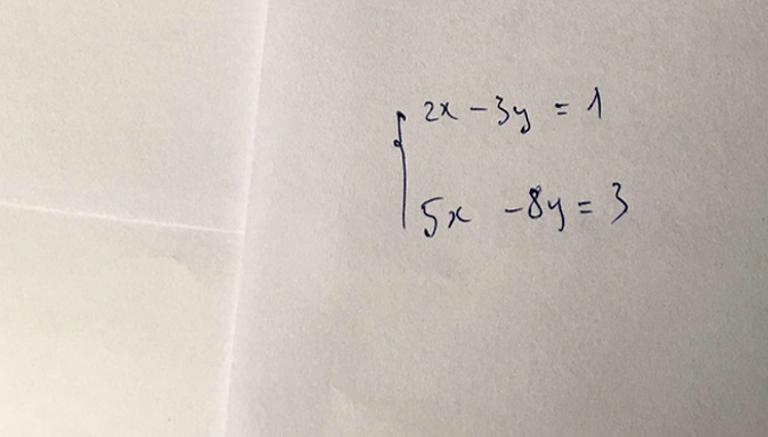 2x - 3y = 1
5x - 8y = 3